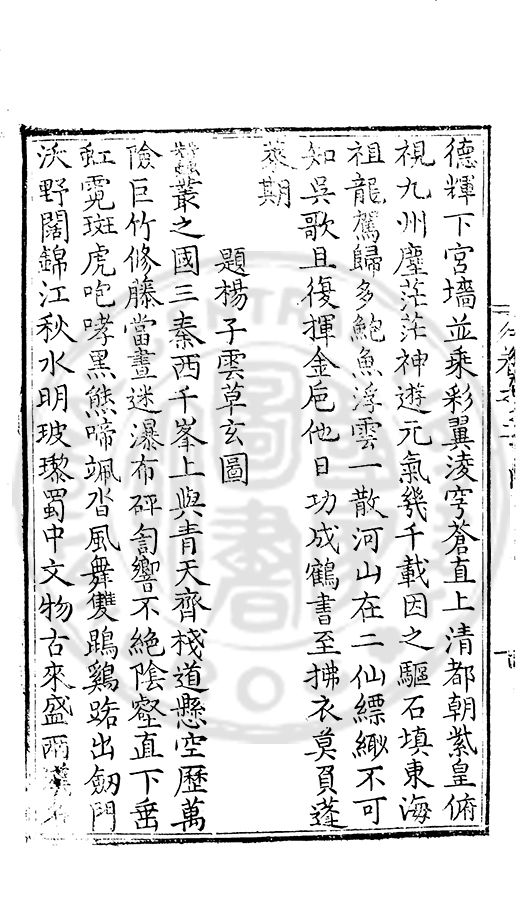 德輝下宮墻並乘彩翼淩穹蒼直上清都朝紫皇俯
視九州塵茫茫神遊元氣幾千載因之驅石填東海
祖龍駕歸多鮑魚浮雲一散河山在二仙縹緲不可
知吳歌且復揮金巵他日功成鶴書至拂衣莫負蓬
萊期
題楊子雲草玄圖
蠶叢之國三秦西千峯上與青天齊棧道懸空歷萬
險巨竹修藤當晝迷瀑布砰訇響不絕陰壑直下垂
虹霓斑虎咆哮黑熊啼颯沓風舞雙鵾鷄路出劒門
沃野闊錦江秋水明玻瓈蜀中文物古來盛兩漢